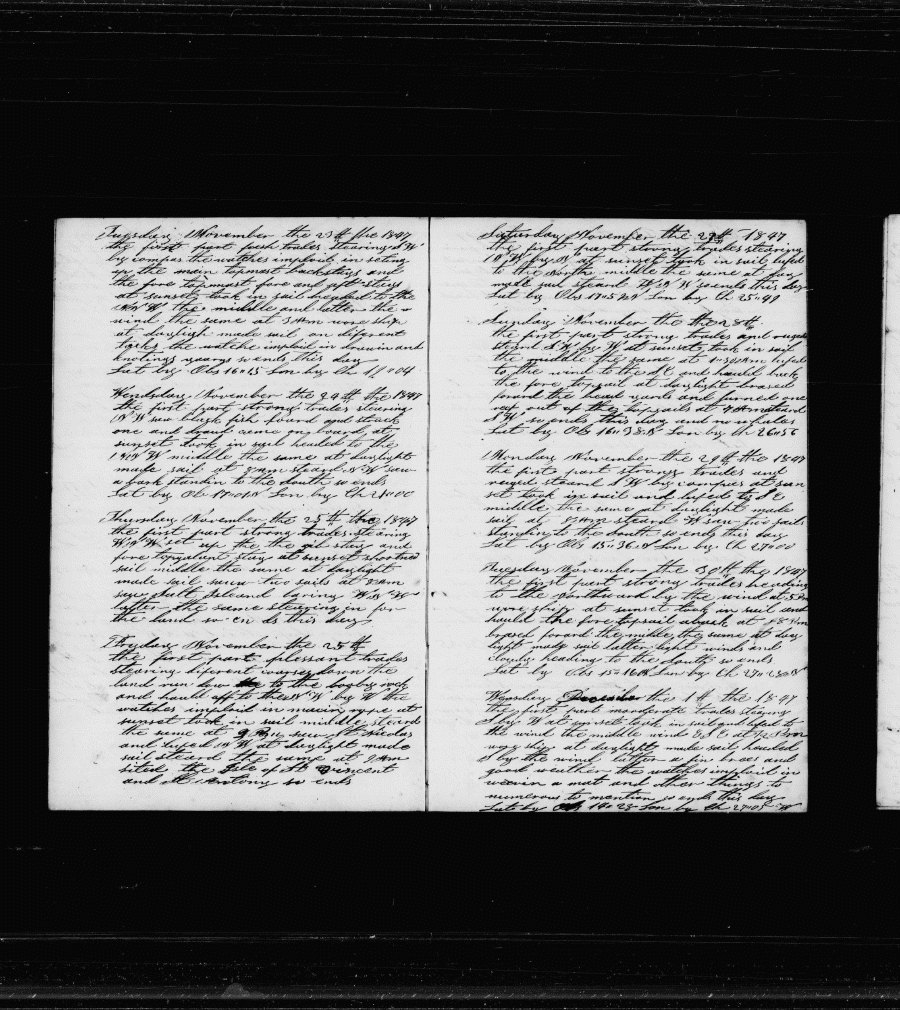 Tuesday November the 23th the 1847
the first part fresh trades stearing S W
by compas the watches imploid in seting
up the main topmast backstays and
the fore topmast fore and aft stays
at sunset took in sail headed to the
W N W the middle and latter the
wind the same at 3 Am wore ship
at dayligh made sail on different
tacks the watche imploid in drawin and
knotings yearns so ends this day
Lat by Obs 16"15 Lon by Ch 04
Wendsday November the 24th the 1847
the first part strong trades stearing
W saw black fish loard and struck
one and dident come ons board at
sunset took in sail headed to the
W middle the same at daylight
made sail at 7 am steard W saw
a bark standin to the South so ends
Lat by Ob 17" Lon by Ch 24"00
Thursday November the 25th the 1847
the first part strong trades stearing
W N W set up the the stay and
fore topgalant stay at sunset shortned
sail middle the same at daylight
made sail saw two sails at 8 am
saw salt Island baring W N W
latter the same stearing in for
the land so en ds this day
Fryday November the 25th
the first part plessant trades
stearing different courses down the
land run down to the rock
and hauld off to the N W by W the
watches imploid in makin rope at
sunset took in sail middle steard
the same at 9 Pm saw St Nicolas
and lufed W at daylight made
sail steard the same at 9 am
sited the Isle of St Vincent
and st Antony so ends
Saturday November the 27th 1847
the first part strong trades stearing
W by at sunset took in sail lufed
to the North middle the same at day
made sail steard W N W so ends this day
Lat by Obs 17" Lon by Ch 25"49
Sunday November the the 28th
the first part strong trades and ruged
stearing S W by W at sunset took in sail
the middle the same at 1"30 Am lufed
to the wind to the S E and hauld back
the fore topsail at daylight braced
forard the head yards and turned one
reef out of the topsails at 7 Am steard
S W so ends this day and no whales
Lat by Ob 16" N Lon by Ch 26"56
Monday November the 29th the 1847
the first part strong trades and
ruged steard S W by compas at sun
set took in sail and lufed to S E
middle the same at daylight made
sail at 7 am steard W saw two sails
standin to the South so ends this day
Lat by Obs 15"36 N Lon by Ch 27"00
Tuesday November the 30th the 1847
the first part strong trades heading
to the Northward by the wind at 5 Pm
wore ship at sunset took in sail and
hauld the fore topsail aback at Am
braced forard the middle the same at day
light made sail latter light winds and
cloudy heading to the South so ends
Lat by Obs 15" N Lon by Ch 27"
Wensday December the 1th the 1847
the first part moderate trades stearing
S by W at sunset took in sail and lufed to
the wind the middle wind E S E at Am
wore ship at daylight made sail headed
S by the wind latter a fin brees and
good weather the watches imploid in
weavin a mat and other things to
numerous to mention so ends this day
Lat by Ob 14" 23 Lon by Ch 27"05 W